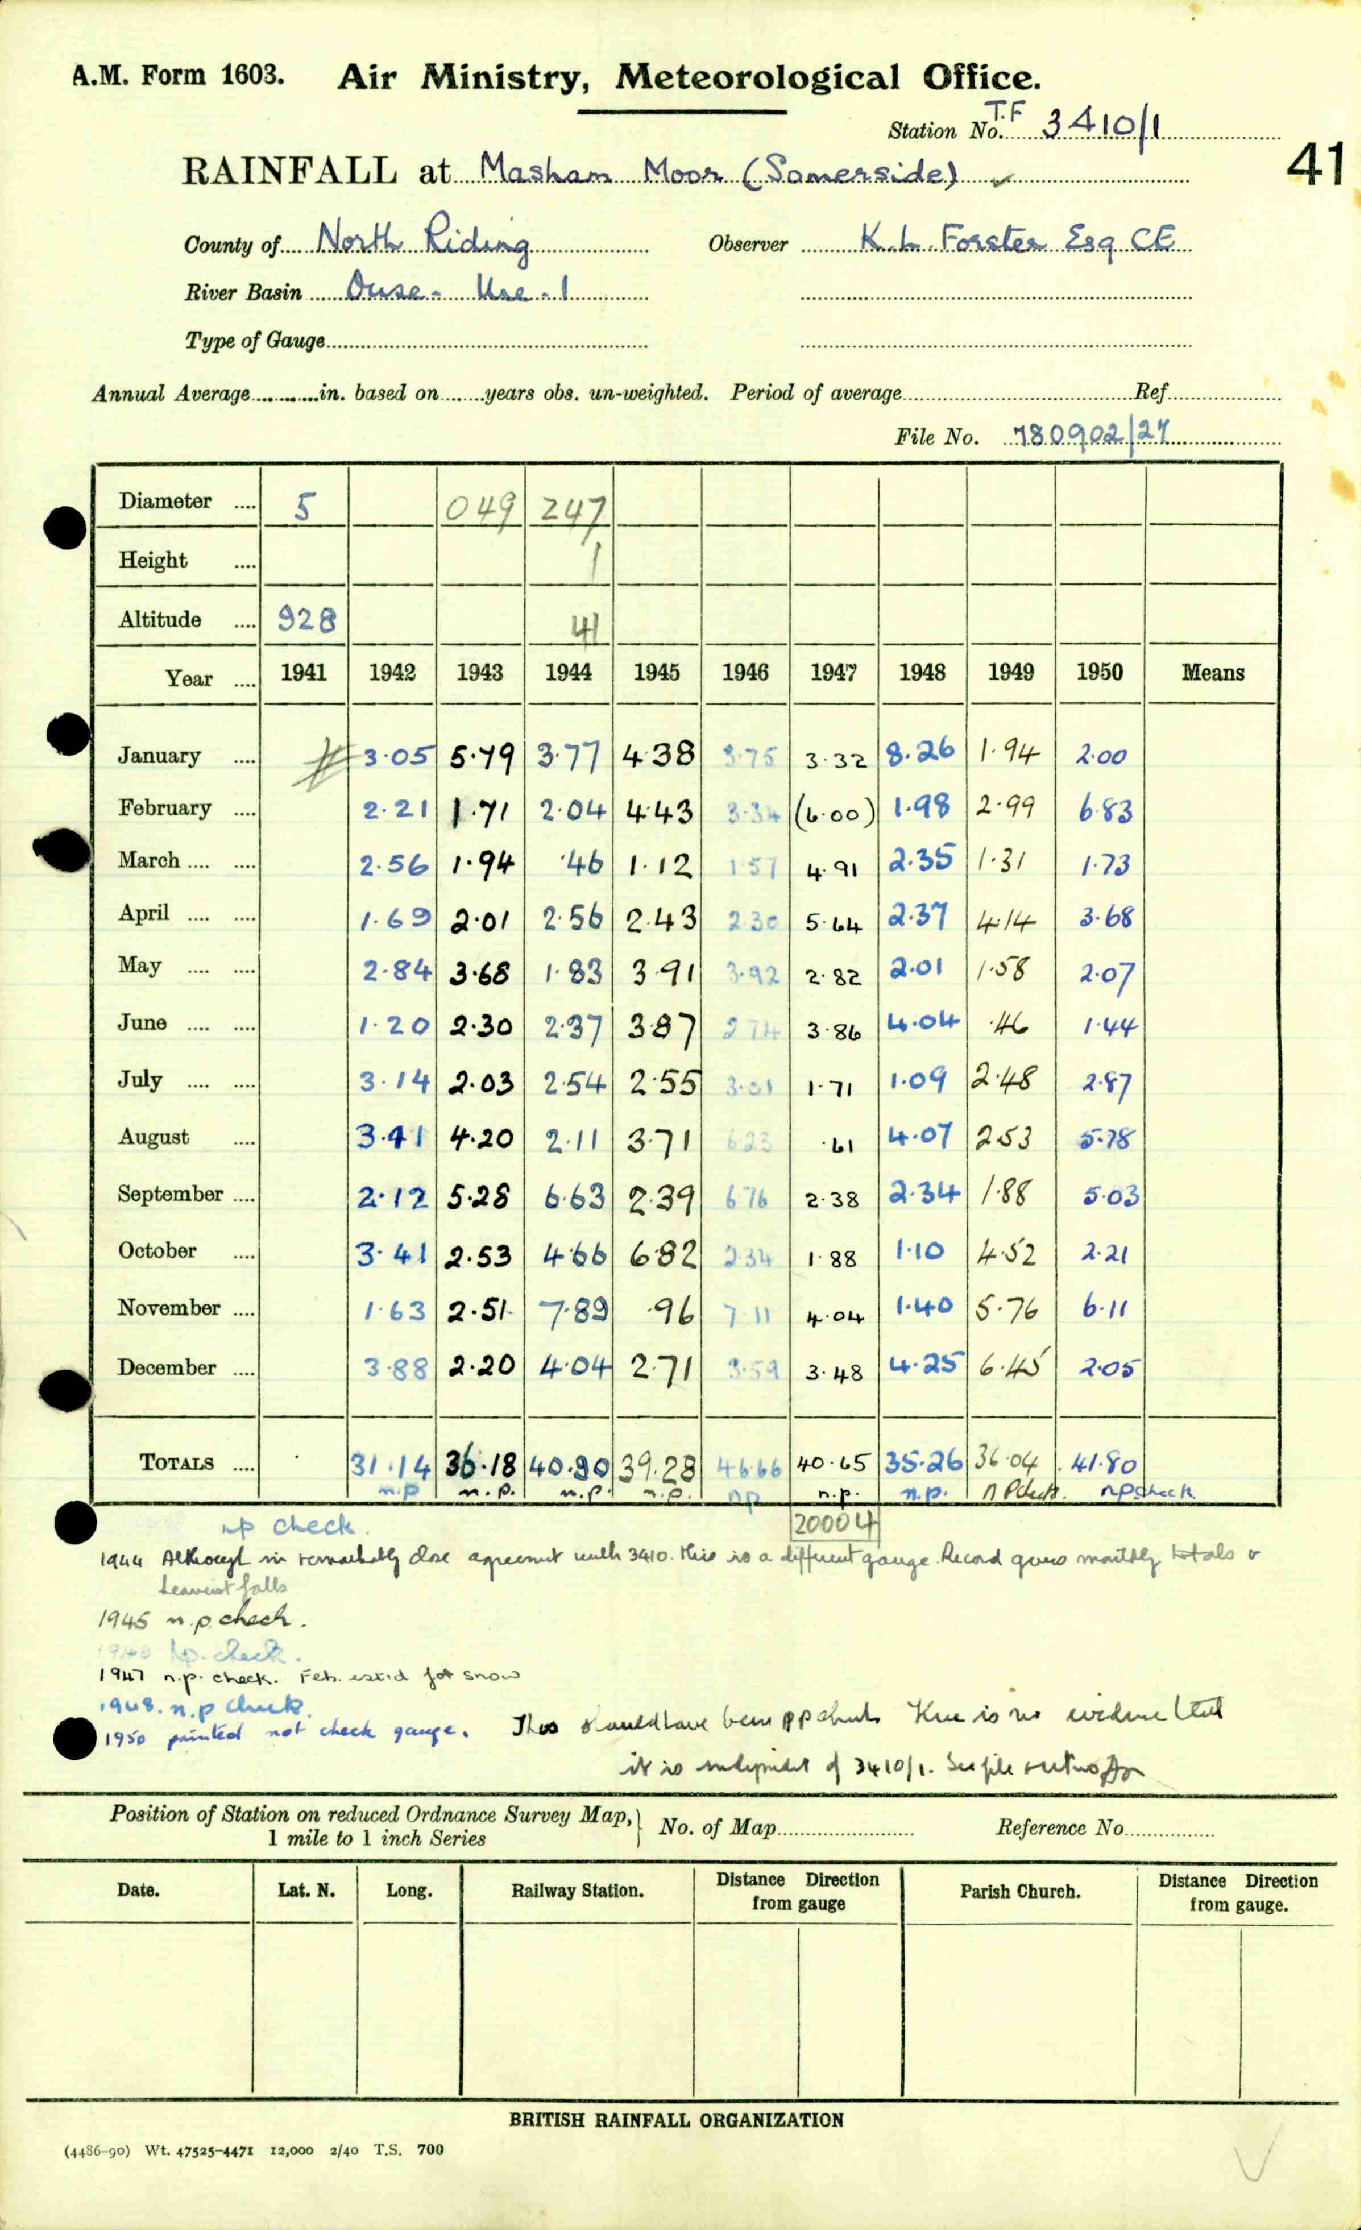 A.M. Form 1603. Air Ministry, Meteorological Office.
Station No. T.F 3410/1
41
RAINFALL at Masham Moor (Somerside) ✓
County of North Riding Observer K.L. Forster Esq CE
River Basin Ouse - Ure - 1
Type of Gauge
Annual Average in. based on years obs. un-weighted. Period of average Ref
File No. 780902/27
Diameter 5 049 247
Height 1
Altitude 928 41
Year 1941 1942 1943 1944 1945 1946 1947 1948 1949 1950 Means
January 3.05 5.79 3.77 4.38 3.75 3.32 8.26 1.94 2.00
February 2.21 1.71 2.04 4.43 3.34 (6.00) 1.98 2.99 6.83
March 2.56 1.94 .46 1.12 1.57 4.91 2.35 1.31 1.73
April 1.69 2.01 2.56 2.43 2.30 5.64 2.37 4.14 3.68
May 2.84 3.68 1.83 3.91 3.92 2.82 2.01 1.58 2.07
June 1.20 2.30 2.37 3.87 2.74 3.86 4.04 .46 1.44
July 3.14 2.03 2.54 2.55 3.01 1.71 1.09 2.48 2.87
August 3.41 4.20 2.11 3.71 6.23 .61 4.07 2.53 5.78
September 2.12 5.28 6.63 2.39 6.76 2.38 2.34 1.88 5.03
October 3.41 2.53 4.66 6.82 2.34 1.88 1.10 4.52 2.21
November 1.63 2.51 7.89 .96 7.11 4.04 1.40 5.76 6.11
December 3.88 2.20 4.04 2.71 3.59 3.48 4.25 6.45 2.05
TOTALS 31.14 36.18 40.90 39.28 46.66 40.65 35.26 36.04 41.80
n.p n.p. n.p. n.p. np n.p. n.p. n p check np check
np check. 20004
1944 Although in remarkably close agreement with 3410. this is a different gauge. Record gives monthly totals &
heaviest falls
1945 n.p. check.
1946 n.p. check.
1947 n.p. check. Feb. est'd for snow
1948. n.p check.
1950 painted not check gauge. This should have been pp check There is no evidence that
it is independent of 3410/1. See file
Position of Station on reduced Ordnance Survey Map, 1 mile to 1 inch Series } No. of Map Reference No
Date. Lat. N. Long. Railway Station. Distance Direction from gauge Parish Church. Distance Direction from gauge.
BRITISH RAINFALL ORGANIZATION
(4486-90) Wt. 47525-4471 12,000 2/40 T.S. 700